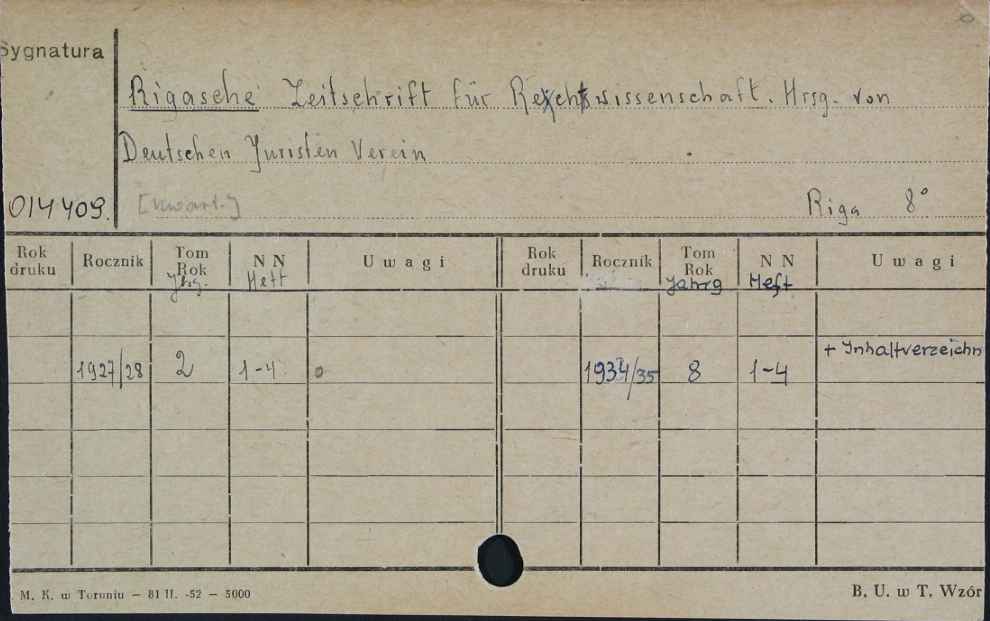 Sygnatura
Rigasche Zeitschrift für Rechtswissenschaft. Hrsg. von
Deutschen Juristen Verein
014409. [kwart.] Riga 8°
Rok druku Rocznik Tom Rok N N Uwagi Rok druku Rocznik Tom Rok N N Uwagi
Jhrg. Heft Jahrg Heft
+ Inhaltverzeichn
1927/28 2 1-4 1934/35 8 1-4
M. K. w Toruniu — 81 II. -52 — 5000 B. U. w T. Wzór